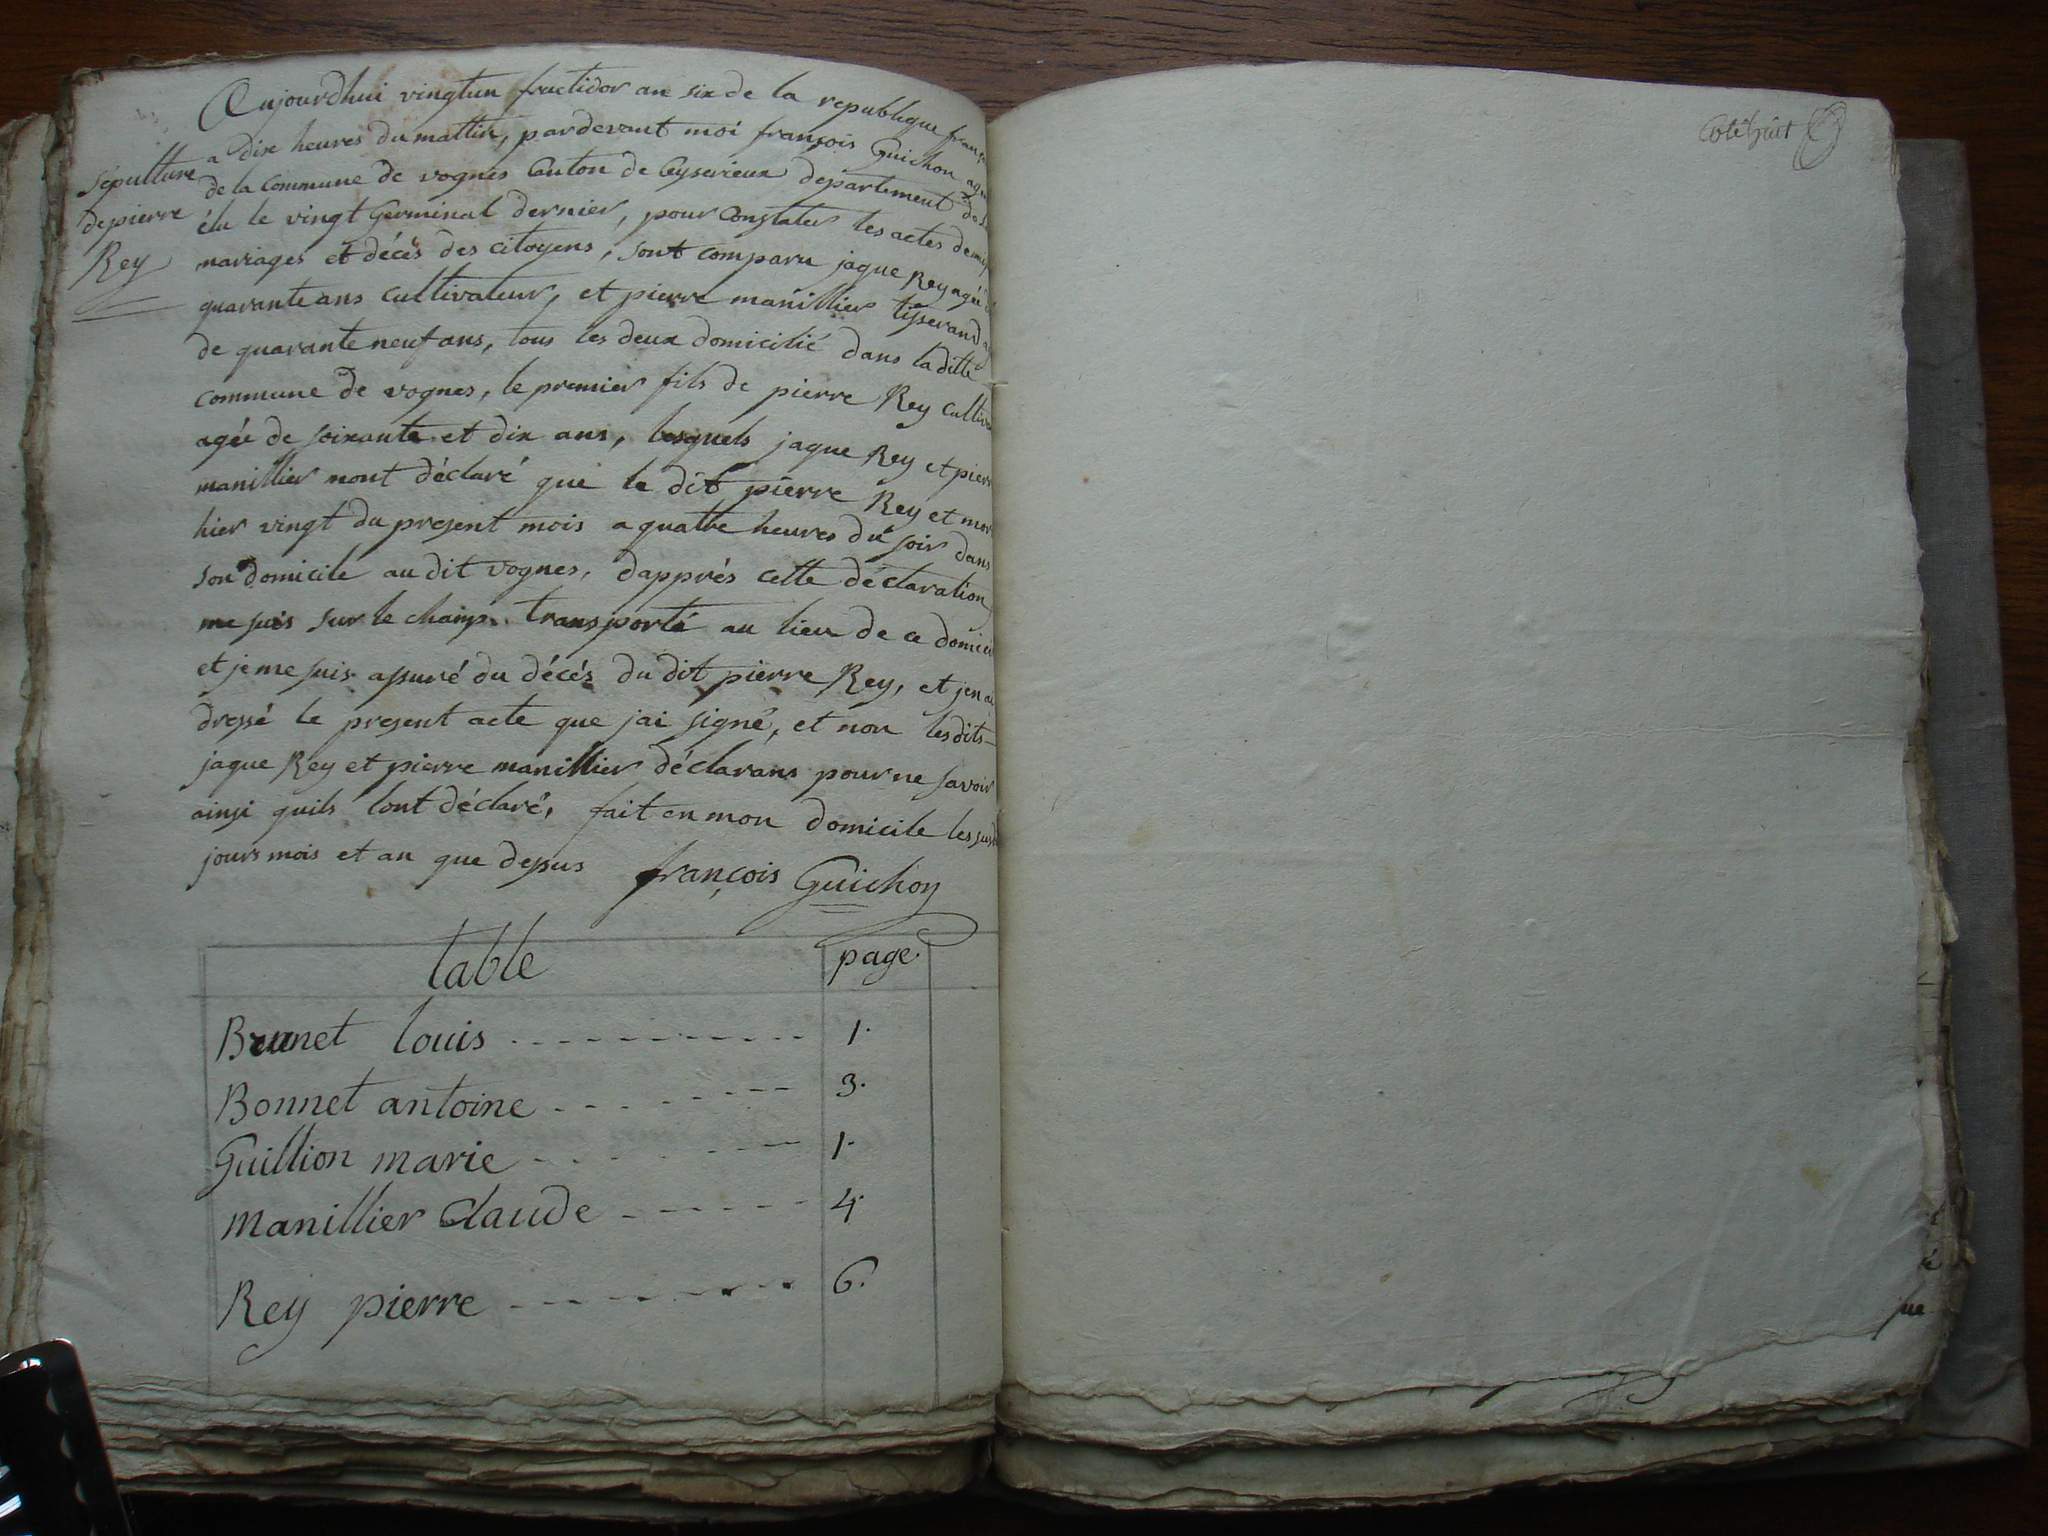 Aujourdhui vingtun fructidor an six de la republique
a dix heures du mattin, pardevant moi françois Guichon
Sepulture
de pierre
Rey
de la commune de vognes Canton de Ceyserieux departement
élu le vingt Germinal dernier, pour Constater les actes de
mariages et décès des citoyens, sont comparu jaque Rey agé
quarante ans cultivateur, et pierre manillier tisserand
de quarante neuf ans, tous les deux domicilié dans la ditte
commune de vognes, le premier fils de pierre Rey
agée de soixante et dix ans, lesquels jaque Rey et
manillier mont déclaré que le dit pierre Rey et
hier vingt du present mois a quatre heures du soir dans
son domicile au dit vognes, dapprès cette déclaration
me suis sur le champ transporté au lieu de ce
et je me suis assuré du décès du dit pierre Rey, et jen
dressé le present acte que jai signé, et non lesdits
jaque Rey et pierre manillier déclarans pour ne savoir
ainsi quils lont déclaré, fait en mon domicile les
jours mois et an que dessus françois Guichon
table page.
Brunet louis 1.
Bonnet antoine 3.
Guillion marie 1.
Manillier Claude 4.
Rey pierre 6.